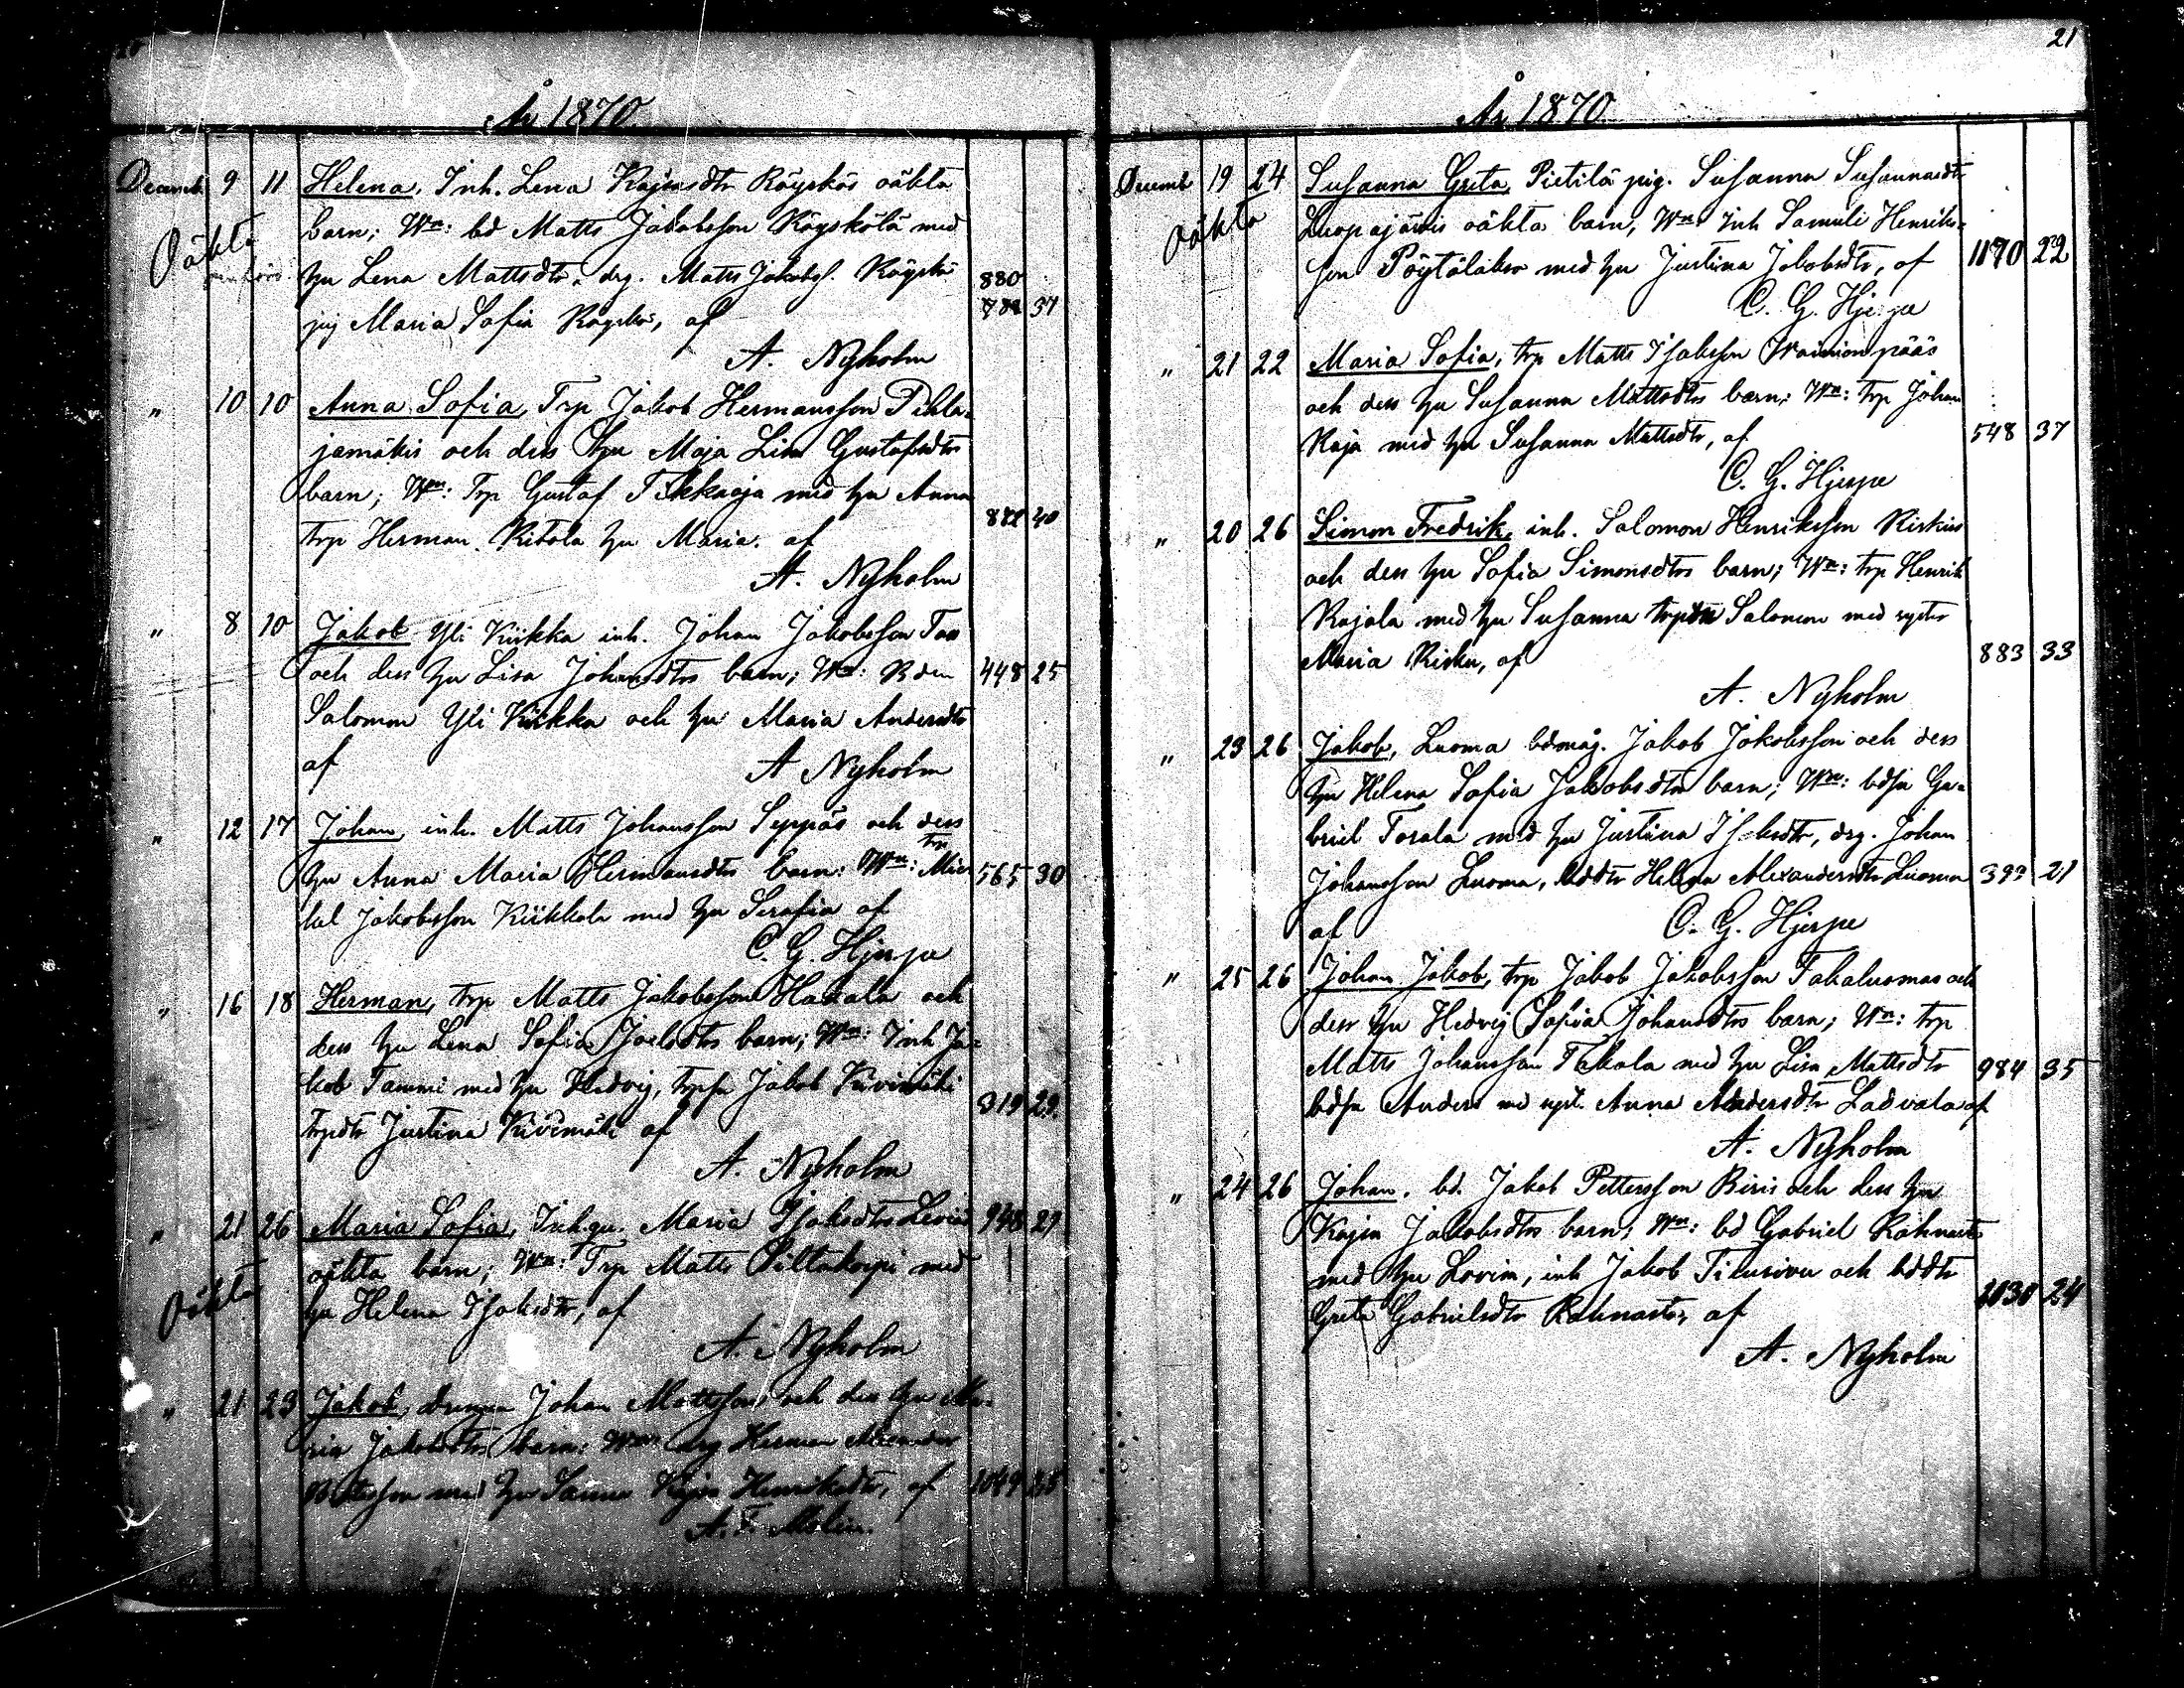 År 1870
Decemb. 9 11 Helena, Inh. Lena Kajsasdtr Röyskös oäkta
Oäkta
barn; Wn: bd Matts Jakobsson Röyskölä med
hu Lena Mattsdtr. drg. Matts Jakobss. Röyskö 880
pig Maria Sofia Röyskö, af 37
A. Nyholm
" 10 10 Anna Sofia, Trp Jakob Hermansson Pihla-
jamäkis och dess Hu Maja Lisa Gustafsdtrs
barn; Wn: Trp Gustaf Tikkaoja med hu Anna
trp Herman Ritola hu Maria. af 40
A. Nyholm
" 8 10 Jakob Yli Kiikka inh. Johan Jakobsson
och dess hu Lisa Johansdtrs barn; Wn: Bden 448 25
Salomon Yli Kiikka och hu Maria Andersdtr
af A Nyholm
" 12 17 Johan, inh. Matts Johansson Seppäs och dess
hu Anna Maria Hermansdtrs barn: Wn: trp Mic- 565 30
kel Jakobsson Kiikkala med hu Serafia af
C. G. Hjerpe
" 16 18 Herman, trp Matts Jakobsson Hakala och
dess hu Lena Sofia Joelsdtrs barn; Wn: Inh Ja-
kob Tammi med hu Hedvig, trpsn Jakob Kivimäki 319 29
trpdtr Justina Kivimäki af
A. Nyholm
" 21 26 Maria Sofia, Inh.qu. Maria Isaksdtrs 948 29
Oäkta
oäkta barn; Wn: Trp Matts Piltakorpi med
hu Helena Isaksdtr, af
A. Nyholm
" 21 23 Jakob, Johan Mattsson och dess hu Ma-
ria Jakobsdtrs barn: Wn: drg Herman
med hu Sanna Kajsa Henriksdtr, af 1049 28
A. F. Molin.
21
År 1870
Decemb 19 24 Susanna Greta, Pietilä pig. Susanna Susannasdtr
Oäkta
Luopajärvis oäkta barn, Wn: Inh Samuli Henriks-
son Pöytälaks med hu Justina Jakobsdtr, af 1170 22
C. G. Hjerpe
" 21 22 Maria Sofia, trp Matts Isaksson Wainionpääs
och dess hu Susanna Mattsdtrs barn: Wn: trp Johan
Kaja med hu Susanna Mattsdtr, af 548 37
C. G. Hjerpe
" 20 26 Simon Fredrik, inh. Salomon Henriksson Riskus
och dess hu Sofia Simonsdtrs barn; Wn: trp Henrik
Rajala med hu Susanna trpsn Salomon med syster
Maria Risku, af 883 33
A. Nyholm
" 23 26 Jakob, Luoma bdmåg. Jakob Jakobsson och dess
hu Helena Sofia Jakobsdtrs barn; Wn: bdsn Ga-
briel Torala med hu Justina Isaksdtr, drg. Johan
Johansson Luoma, bddtr Helena Alexandersdtr Luoma 393 21
af C. G. Hjerpe
" 25 26 Johan Jakob, trp Jakob Jakobsson Takaluomas och
dess hu Hedvig Sofia Johansdtrs barn; Wn: trp
Matts Johansson Takala med hu Lisa Mattsdtr 984 35
bdsn Anders med syst. Anna Andersdtr Ladvala af
A. Nyholm
" 24 26 Johan. bd. Jakob Pettersson Biris och dess hu
Kajsa Jakobsdtrs barn; Wn: bd Gabriel Rahnasto
med hu Lovisa, inh Jakob Tiensivu och bddtr
Greta Gabrielsdtr Rahnasto, af 1030 24
A. Nyholm